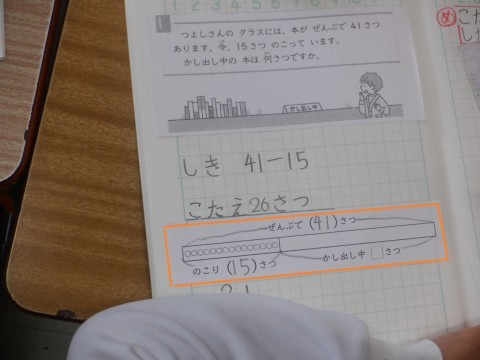 1 2 3 4 5 6 7 8 9 10
1
つよしさんの クラスには、本が ぜんぶで 41 さつ
あります。今、15 さつ のこって います。
かし出し中の 本は 何さつですか。
かし出し中
しき 41-15
こたえ 26さつ
ぜんぶで (41) さつ
のこり (15) さつ
かし出し中 □ さつ
め